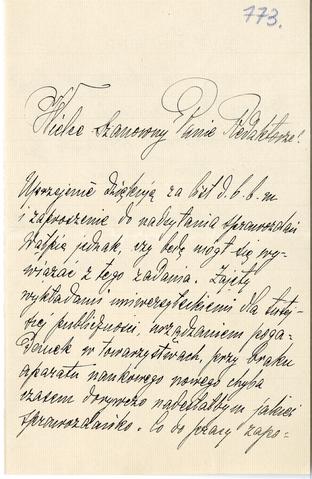 773.
Wielce Szanowny Panie Redaktorze!
Uprzejmie dziękuję za list d. b. b. m
i zaproszenie do nadsyłania sprawozdań
wątpię jednak, czy będę mógł się wy-
wiązać z tego zadania. Zajęty
wykładami uniwersyteckiemi dla tutej-
szej publiczności, urządzaniem poga-
danek w towarzystwach, przy braku
aparatu naukowego nowego chyba
czasem dorywczo nadesłałbym jakieś
sprawozdańko. Co do pracy zapo=